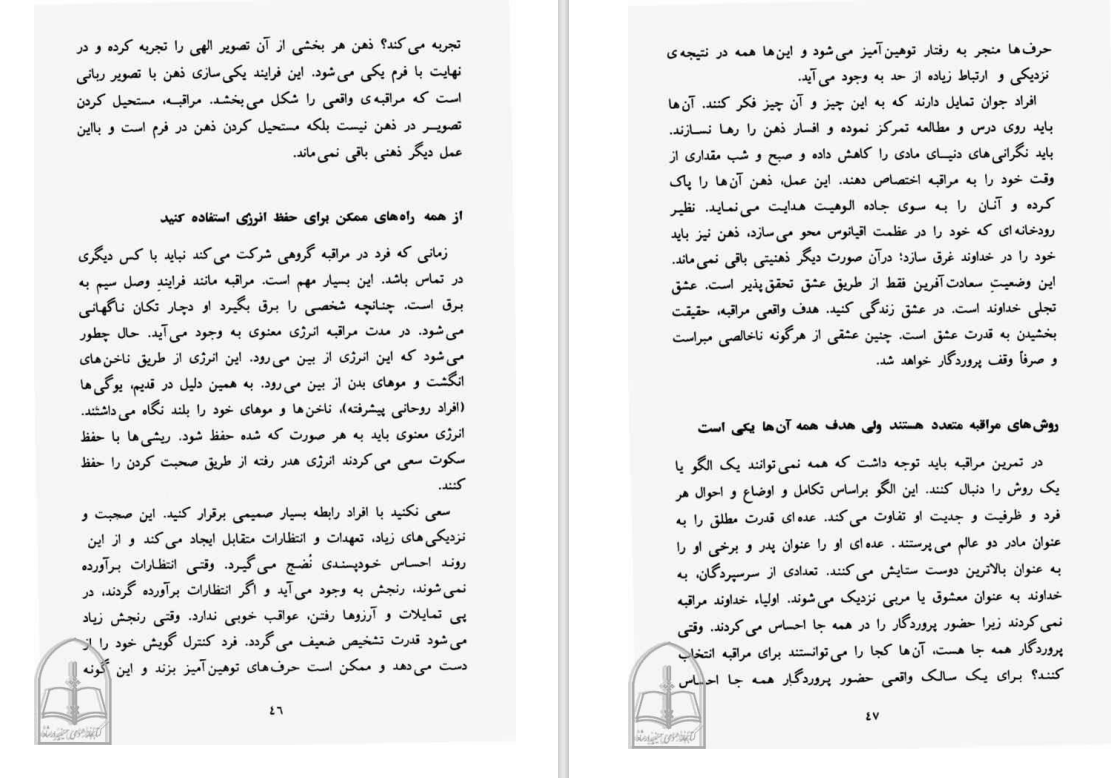 تجربه می‌کند؟ ذهن هر بخشی از آن تصویر الهی را تجربه کرده و در
نهایت با فرم یکی می‌شود. این فرایند یکی‌سازی ذهن با تصویر ربانی
است که مراقبه‌ی واقعی را شکل می‌بخشد. مراقبه، مستحیل کردن
تصویر در ذهن نیست بلکه مستحیل کردن ذهن در فرم است و بااین
عمل دیگر ذهنی باقی نمی‌ماند.
از همه راه‌های ممکن برای حفظ انرژی استفاده کنید
زمانی که فرد در مراقبه گروهی شرکت می‌کند نباید با کس دیگری
در تماس باشد. این بسیار مهم است. مراقبه مانند فرایندِ وصل سیم به
برق است. چنانچه شخصی را برق بگیرد او دچار تکان ناگهانی
می‌شود. در مدت مراقبه انرژی معنوی به وجود می‌آید. حال چطور
می‌شود که این انرژی از بین می‌رود. این انرژی از طریق ناخن‌های
انگشت و موهای بدن از بین می‌رود. به همین دلیل در قدیم، یوگی‌ها
(افراد روحانی پیشرفته)، ناخن‌ها و موهای خود را بلند نگاه می‌داشتند.
انرژی معنوی باید به هر صورت که شده حفظ شود. ریشی‌ها با حفظ
سکوت سعی می‌کردند انرژی هدر رفته از طریق صحبت کردن را حفظ
کنند.
سعی نکنید با افراد رابطه بسیار صمیمی برقرار کنید. این صحبت و
نزدیکی‌های زیاد، تعهدات و انتظارات متقابل ایجاد می‌کند و از این
روند احساس خودپسندی نُضج می‌گیرد. وقتی انتظارات برآورده
نمی‌شوند، رنجش به وجود می‌آید و اگر انتظارات برآورده گردند، در
پی تمایلات و آرزوها رفتن، عواقب خوبی ندارد. وقتی رنجش زیاد
می‌شود قدرت تشخیص ضعیف می‌گردد. فرد کنترل گویش خود را از
دست می‌دهد و ممکن است حرف‌های توهین‌آمیز بزند و این گونه
٤٦
حرف‌ها منجر به رفتار توهین‌آمیز می‌شود و این‌ها همه در نتیجه‌ی
نزدیکی و ارتباط زیاده از حد به وجود می‌آید.
افراد جوان تمایل دارند که به این چیز و آن چیز فکر کنند. آن‌ها
باید روی درس و مطالعه تمرکز نموده و افسار ذهن را رها نسازند.
باید نگرانی‌های دنیای مادی را کاهش داده و صبح و شب مقداری از
وقت خود را به مراقبه اختصاص دهند. این عمل، ذهن آن‌ها را پاک
کرده و آنان را به سوی جاده الوهیت هدایت می‌نماید. نظیر
رودخانه‌ای که خود را در عظمت اقیانوس محو می‌سازد، ذهن نیز باید
خود را در خداوند غرق سازد؛ درآن صورت دیگر ذهنیتی باقی نمی‌ماند.
این وضعیتِ سعادت‌آفرین فقط از طریق عشق تحقق‌پذیر است. عشق
تجلی خداوند است. در عشق زندگی کنید. هدف واقعی مراقبه، حقیقت
بخشیدن به قدرت عشق است. چنین عشقی از هرگونه ناخالصی مبراست
و صرفاً وقف پروردگار خواهد شد.
روش‌های مراقبه متعدد هستند ولی هدف همه آن‌ها یکی است
در تمرین مراقبه باید توجه داشت که همه نمی‌توانند یک الگو یا
یک روش را دنبال کنند. این الگو براساس تکامل و اوضاع و احوال هر
فرد و ظرفیت و جدیت او تفاوت می‌کند. عده‌ای قدرت مطلق را به
عنوان مادر دو عالم می‌پرستند. عده‌ای او را عنوان پدر و برخی او را
به عنوان بالاترین دوست ستایش می‌کنند. تعدادی از سرسپردگان، به
خداوند به عنوان معشوق یا مربی نزدیک می‌شوند. اولیاء خداوند مراقبه
نمی‌کردند زیرا حضور پروردگار را در همه جا احساس می‌کردند. وقتی
پروردگار همه جا هست، آن‌ها کجا را می‌توانستند برای مراقبه انتخاب
کنند؟ برای یک سالک واقعی حضور پروردگار همه جا احساس
٤٧